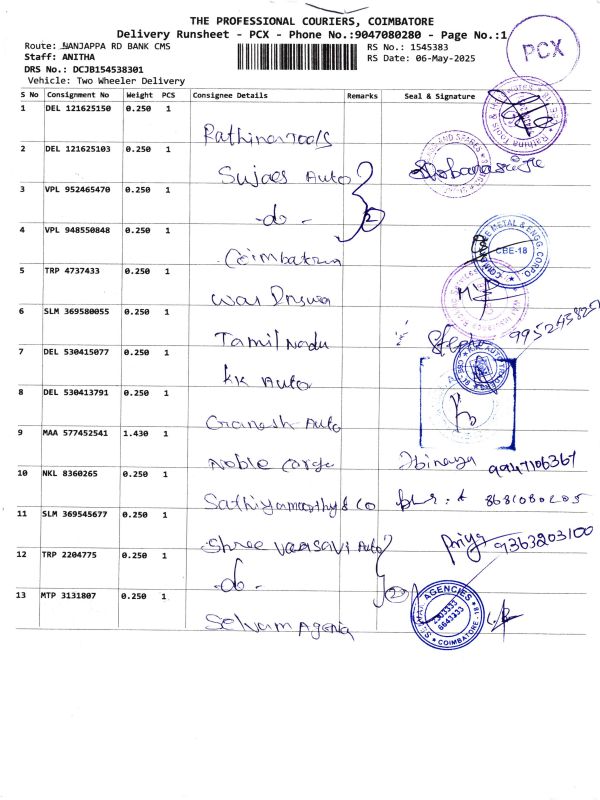 THE PROFESSIONAL COURIERS, COIMBATORE
Delivery Runsheet - PCX - Phone No.:9047080280 - Page No.:1
Route: NANJAPPA RD BANK CMS
RS No.: 1545383
Staff: ANITHA
RS Date: 06-May-2025
DRS No.: DCJB154538301
Vehicle: Two Wheeler Delivery
PCX
S No Consignment No Weight PCS Consignee Details Remarks Seal & Signature
1 DEL 121625150 0.250 1 Rathina Tools
2 DEL 121625103 0.250 1 Sujaes Auto
3 VPL 952465470 0.250 1 -do- 2
4 VPL 948550848 0.250 1 Coimbatore CBE-18
5 TRP 4737433 0.250 1
6 SLM 369580055 0.250 1 Tamil Nadu
7 DEL 530415077 0.250 1 KK Auto
8 DEL 530413791 0.250 1 Ganesh Auto
9 MAA 577452541 1.430 1 Noble Cargo Ibinaya 9947106367
10 NKL 8360265 0.250 1 Sathiyamoorthy & Co
11 SLM 369545677 0.250 1 Shree Vaasavi Auto Priya 9363203100
12 TRP 2204775 0.250 1 -do- 2
13 MTP 3131807 0.250 1 Selvam Agencies